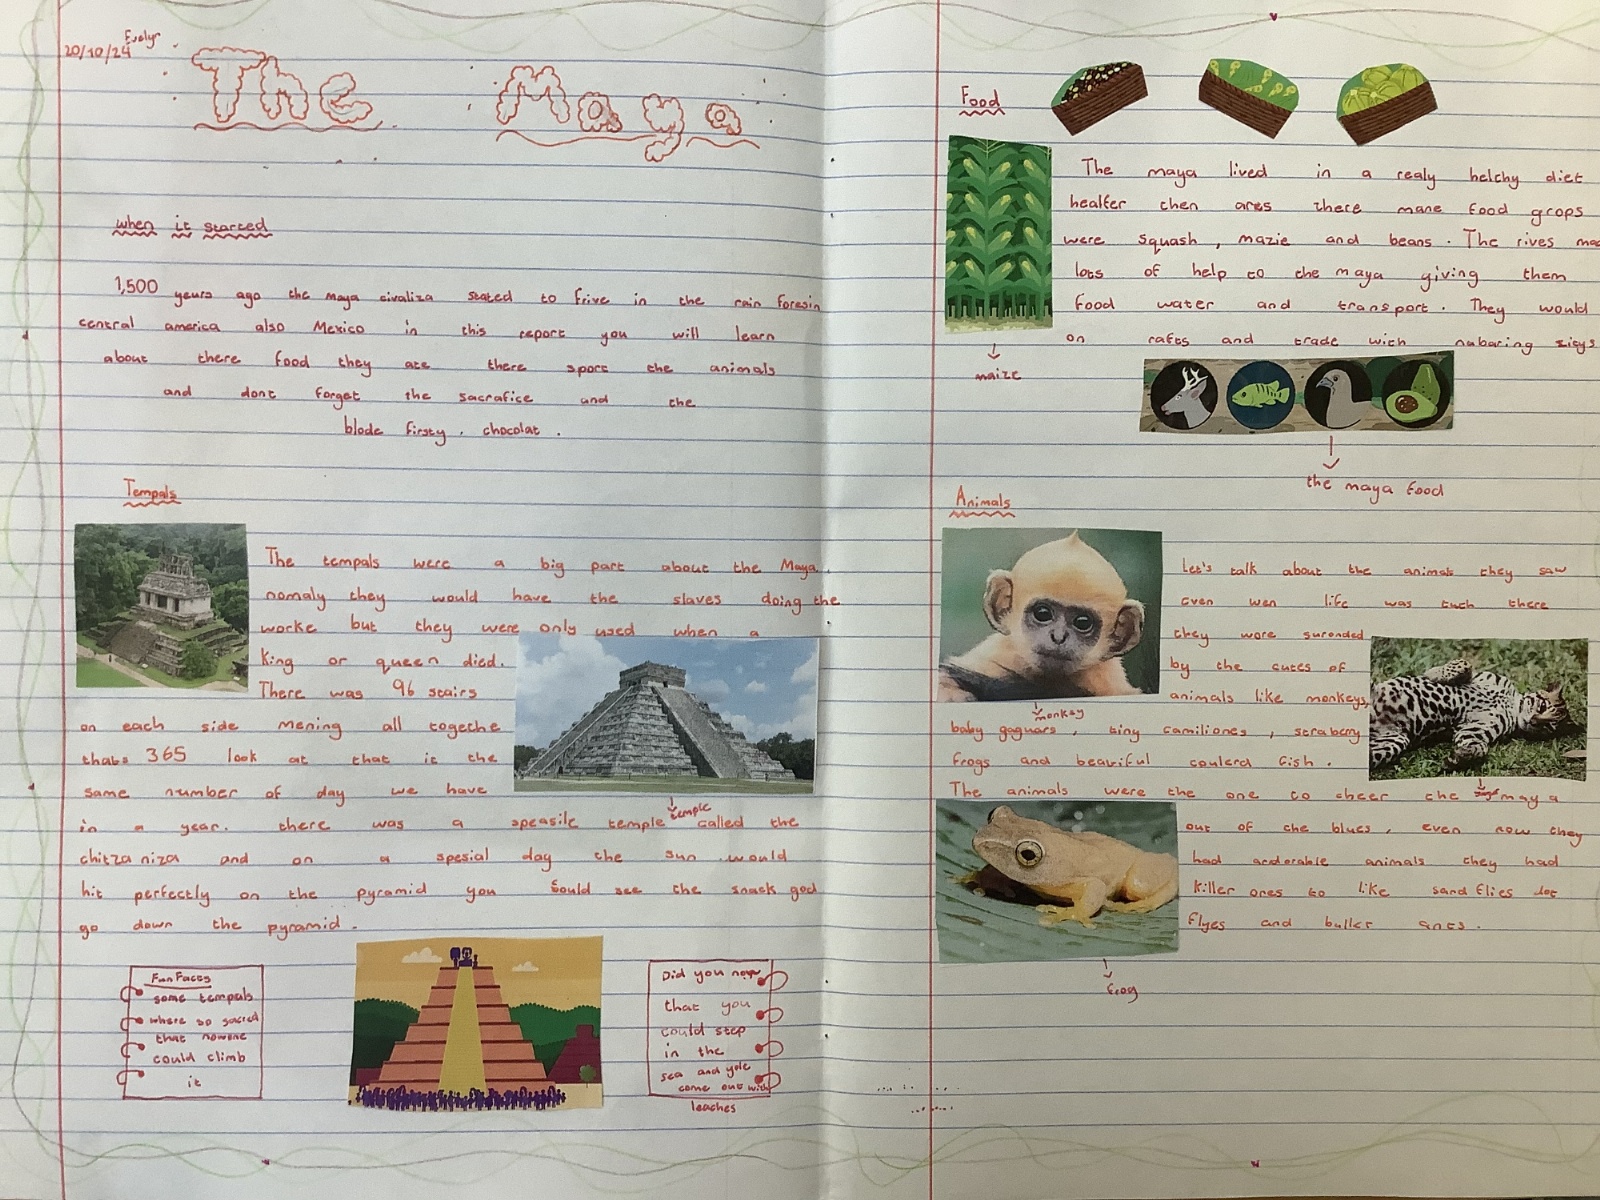 Evelyn
20/10/24
The Maya
when it started
1,500 years ago the maya civaliza stated to frive in the rain foresin
central america also Mexico in this report you will learn
about there food they ate there sport the animals
and dont forget the sacrafice and the
blode firsty . chocolat .
Tempals
The tempals were a big part about the Maya.
nomaly they would have the slaves doing the
worke but they were only used when a
King or queen died.
There was 96 stairs
on each side mening all togethe
thats 365 look at that it the
same number of day we have
temple
in a year. there was a speasile temple called the
chitza niza and on a spesial day the sun would
hit perfectly on the pyramid you sould see the snack god
go down the pyramid .
Fun Facts
some tempals
where so sacred
that nowone
could climb
it
Did you now
that you
could step
in the
sea and yole
come out with
leaches
Food
The maya lived in a realy helthy diet
healfer then ares there mane food grops
were squash , mazie and beans . The rives
lots of help to the maya giving them
food water and transport . They would
on rafts and trade with nabaring
maize
the maya food
Animals
Let's talk about the animals they saw
even wen life was tuth there
they wore suronded
by the cutes of
animals like monkeys,
monkey
baby gaguars , tiny camiliones , straberry
frogs and beautiful coulerd fish .
The animals were the one to cheer the maya
out of the blues , even now they
had ardorable animals they had
killer ones to like sand flies dot
flyes and bullet ants .
frog